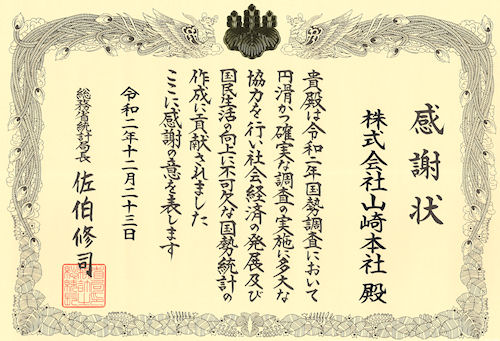 感謝状
株式会社山崎本社 殿
貴殿は令和二年国勢調査において
円滑かつ確実な調査の実施に多大な
協力を行い社会経済の発展及び
国民生活の向上に不可欠な国勢統計の
作成に貢献されました
ここに感謝の意を表します
令和二年十二月二十三日
総務省統計局長 佐伯修司